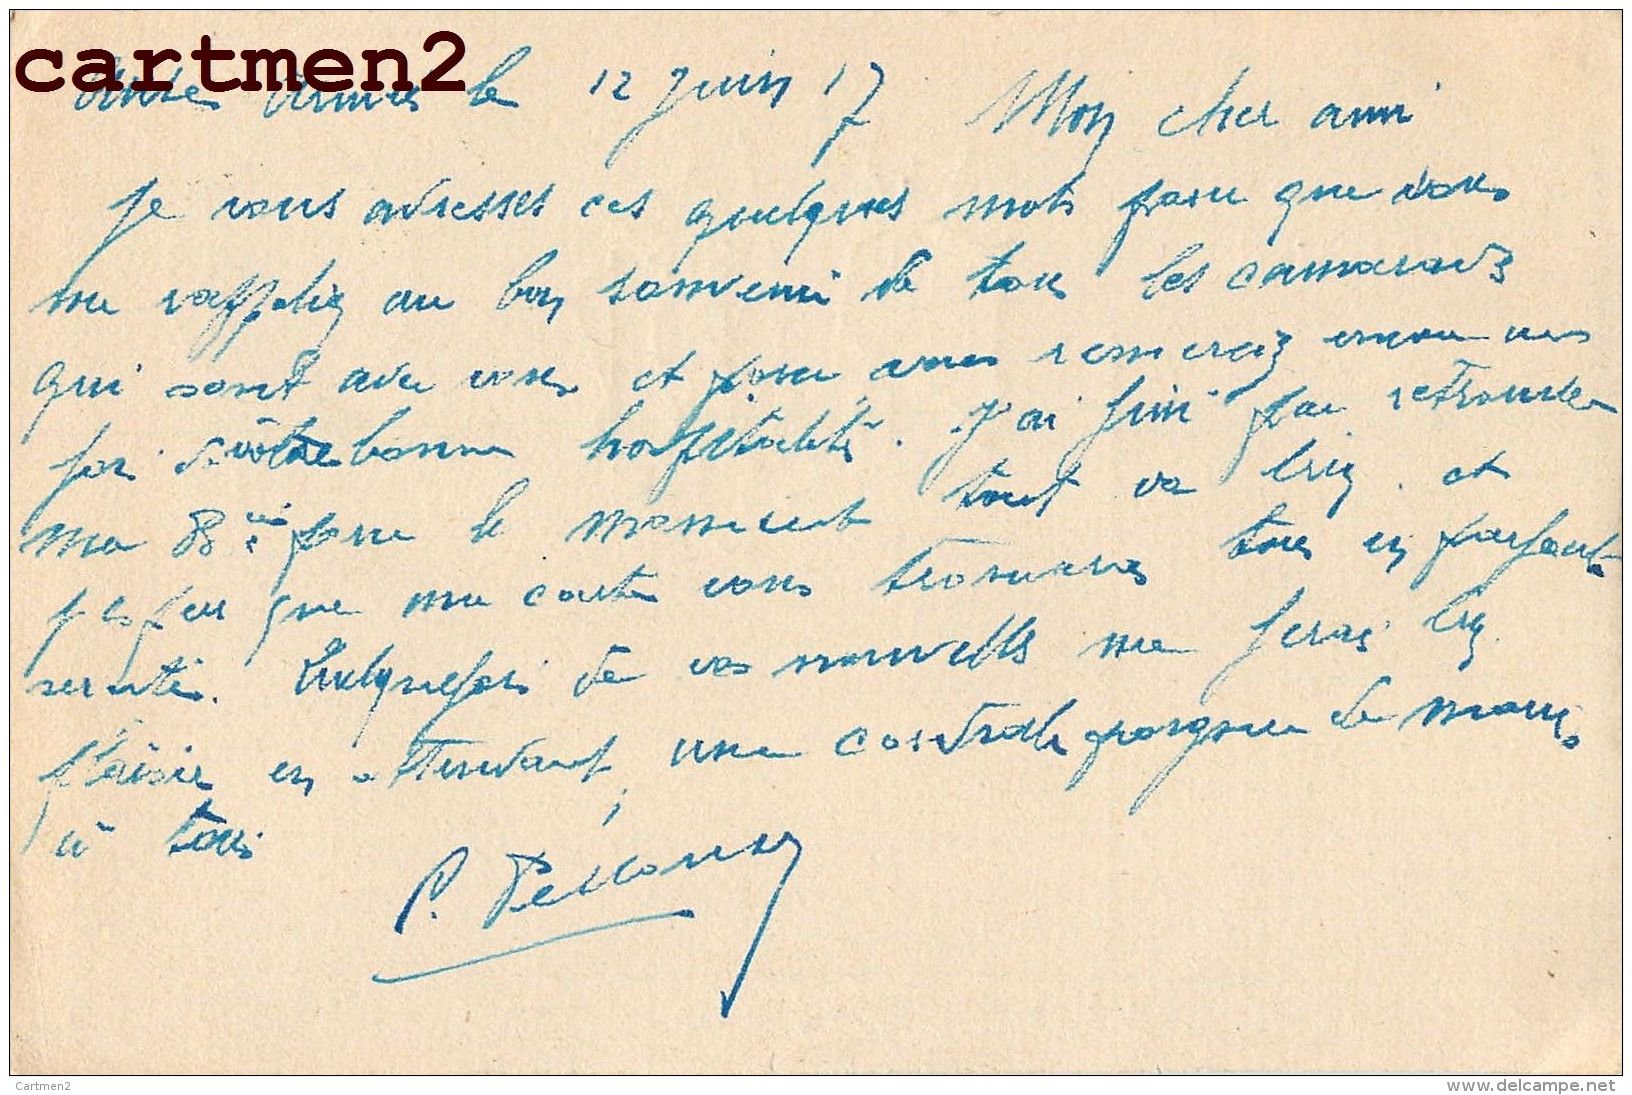 cartmen2
Armées le 12 Juin 17 Mon cher ami
Je vous adresses ces quelques mots pour que vous
me rappeliez au bon souvenir de tous les camarades
qui sont avec vous et pour vous remerciez encore une
fois de vôtre bonne hospitalité. J'ai fini par retrouver
ma Bie pour le moment tout va bien et
j'espère que ma carte vous trouvera tous en parfaite
santés. Quelquefois de vos nouvelles me ferais bien
plaisir en attendant, une cordiale poignée de mains
à tous
P.
Cartmen2
www.delcampe.net